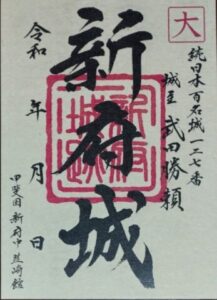 大
続日本百名城一二七番
城主 武田勝頼
新府城
令和 年 月 日
甲斐国 新府中 韮崎館